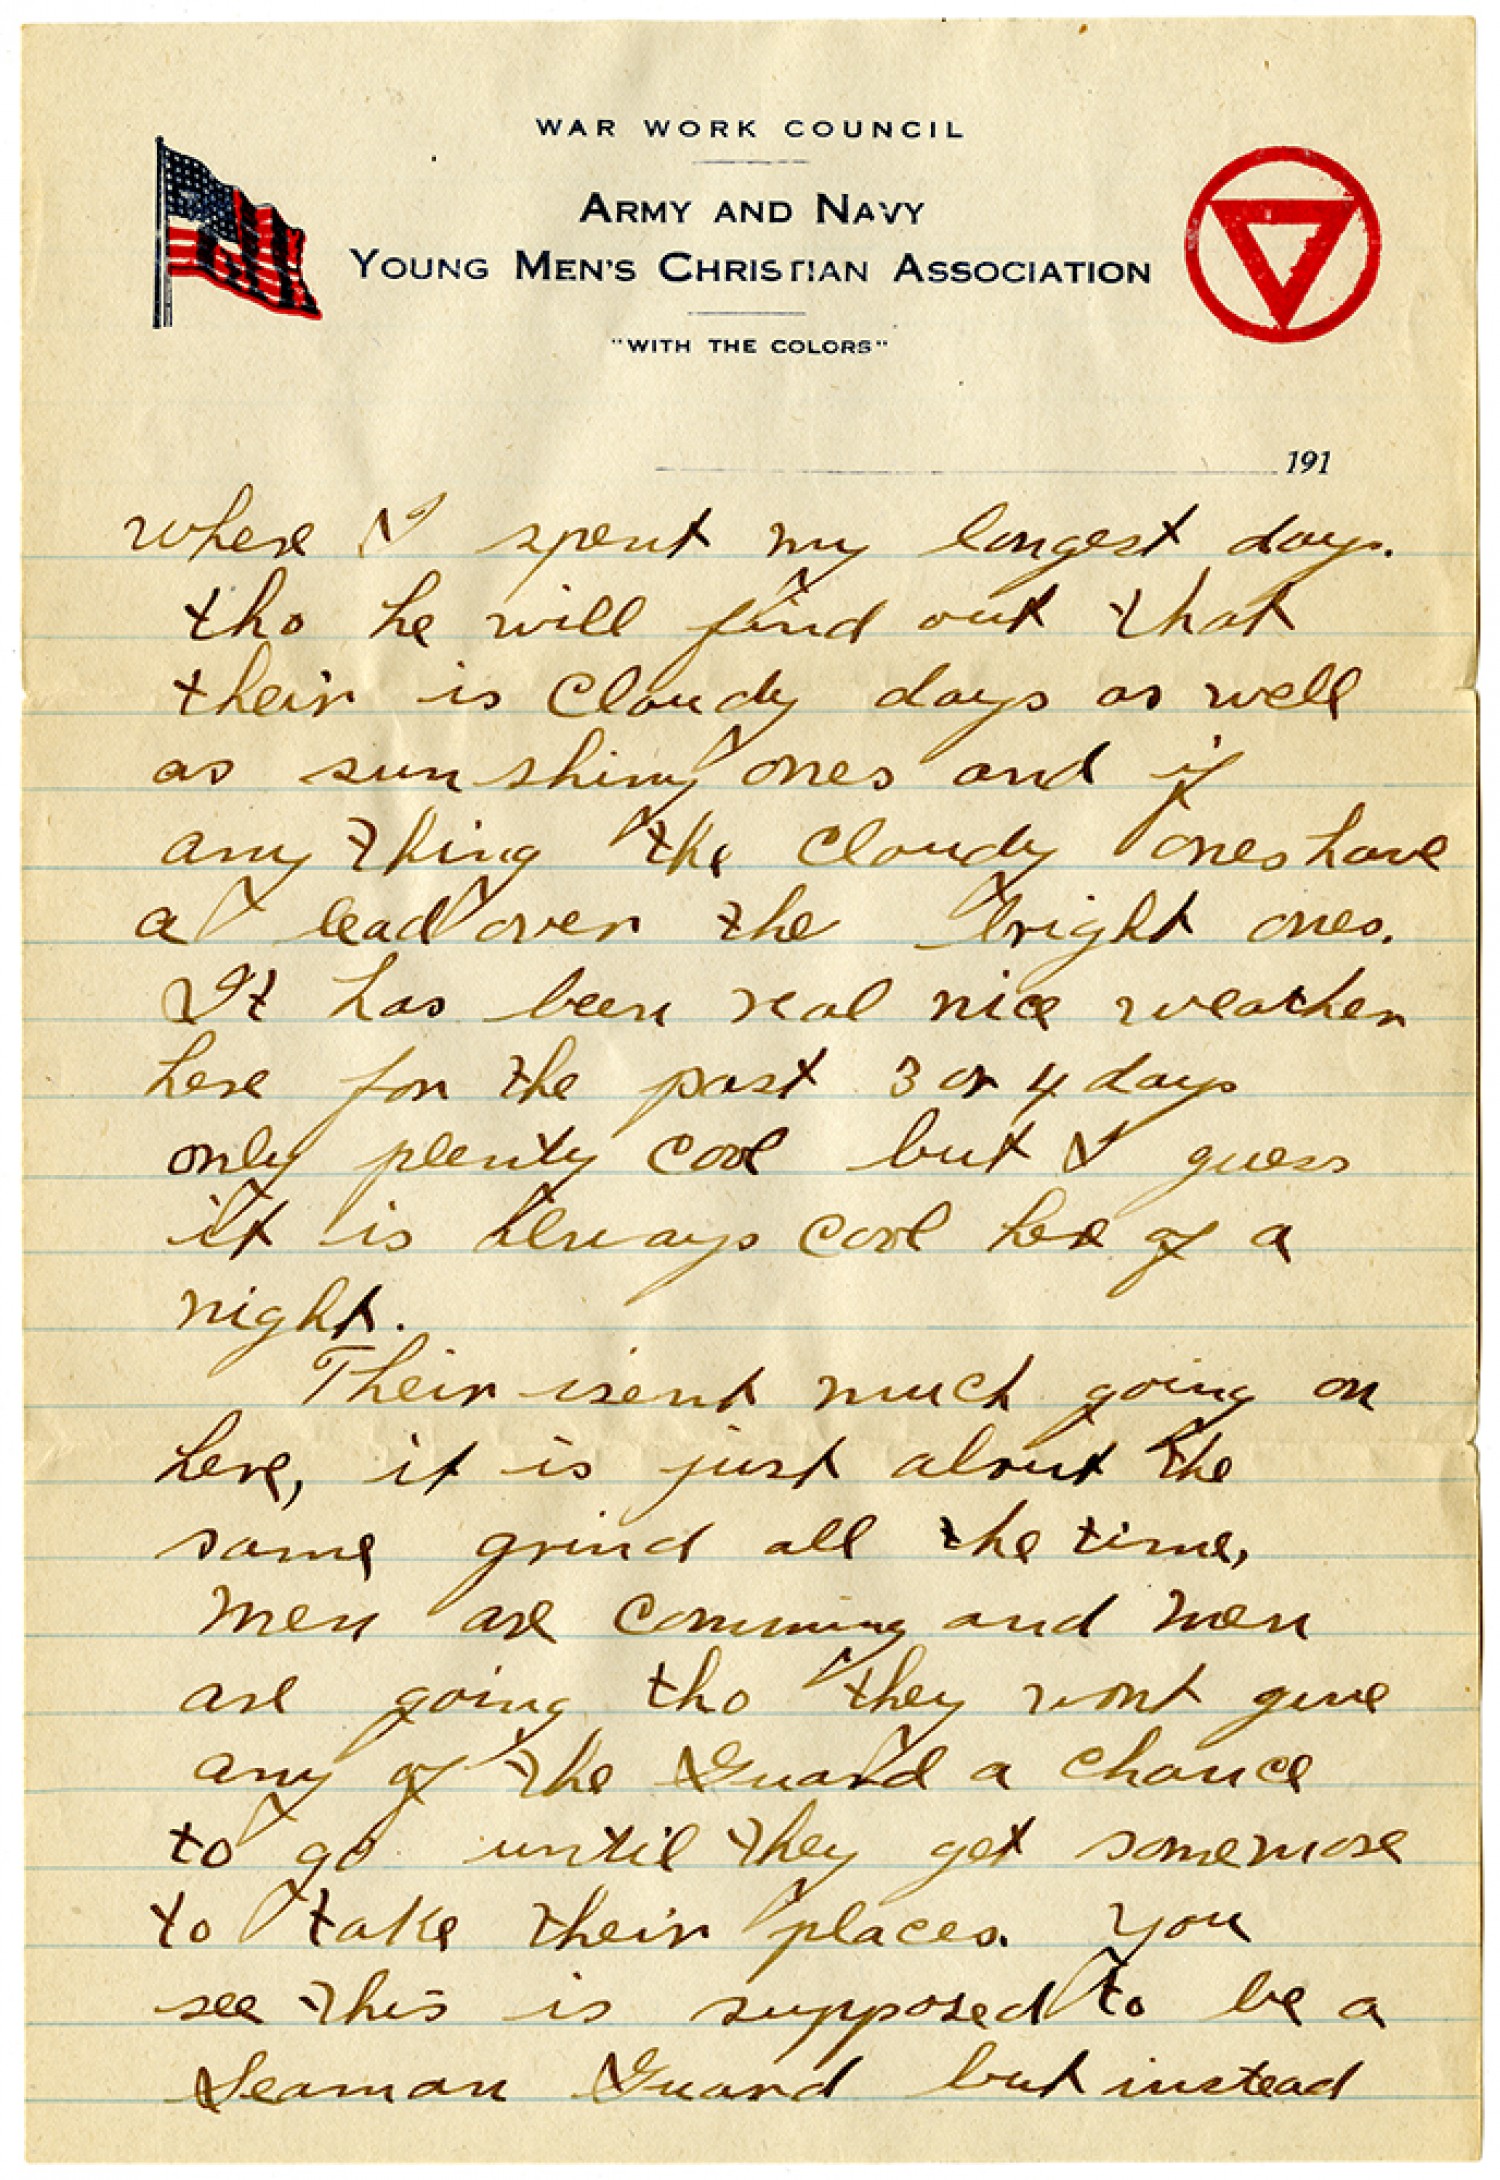 WAR WORK COUNCIL
ARMY AND NAVY
YOUNG MEN'S CHRISTIAN ASSOCIATION
"WITH THE COLORS"
191
where I spent my longest days.
tho he will find out that
their is cloudy days as well
as sun shiny ones and if
any thing the cloudy ones have
a lead over the bright ones.
It has been real nice weather
here for the past 3 or 4 days
only plenty cool but I guess
it is always cool here of a
night.
Their isent much going on
here, it is just about the
same grind all the time,
men are comming and men
are going tho they wont give
any of the Guard a chance
to go until they get some more
to take their places. You
see this is supposed to be a
Seaman Guard but instead